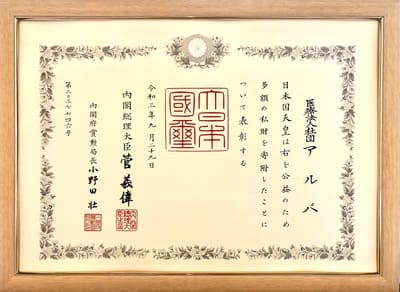 医療法人社団 アルバ
日本国天皇は右を公益のため
多額の私財を寄附したことに
ついて表彰する
大日本
國璽
令和三年九月二十九日
内閣総理大臣 菅義偉
内閣府賞勲局長 小野田 壮
第二三七七四六号